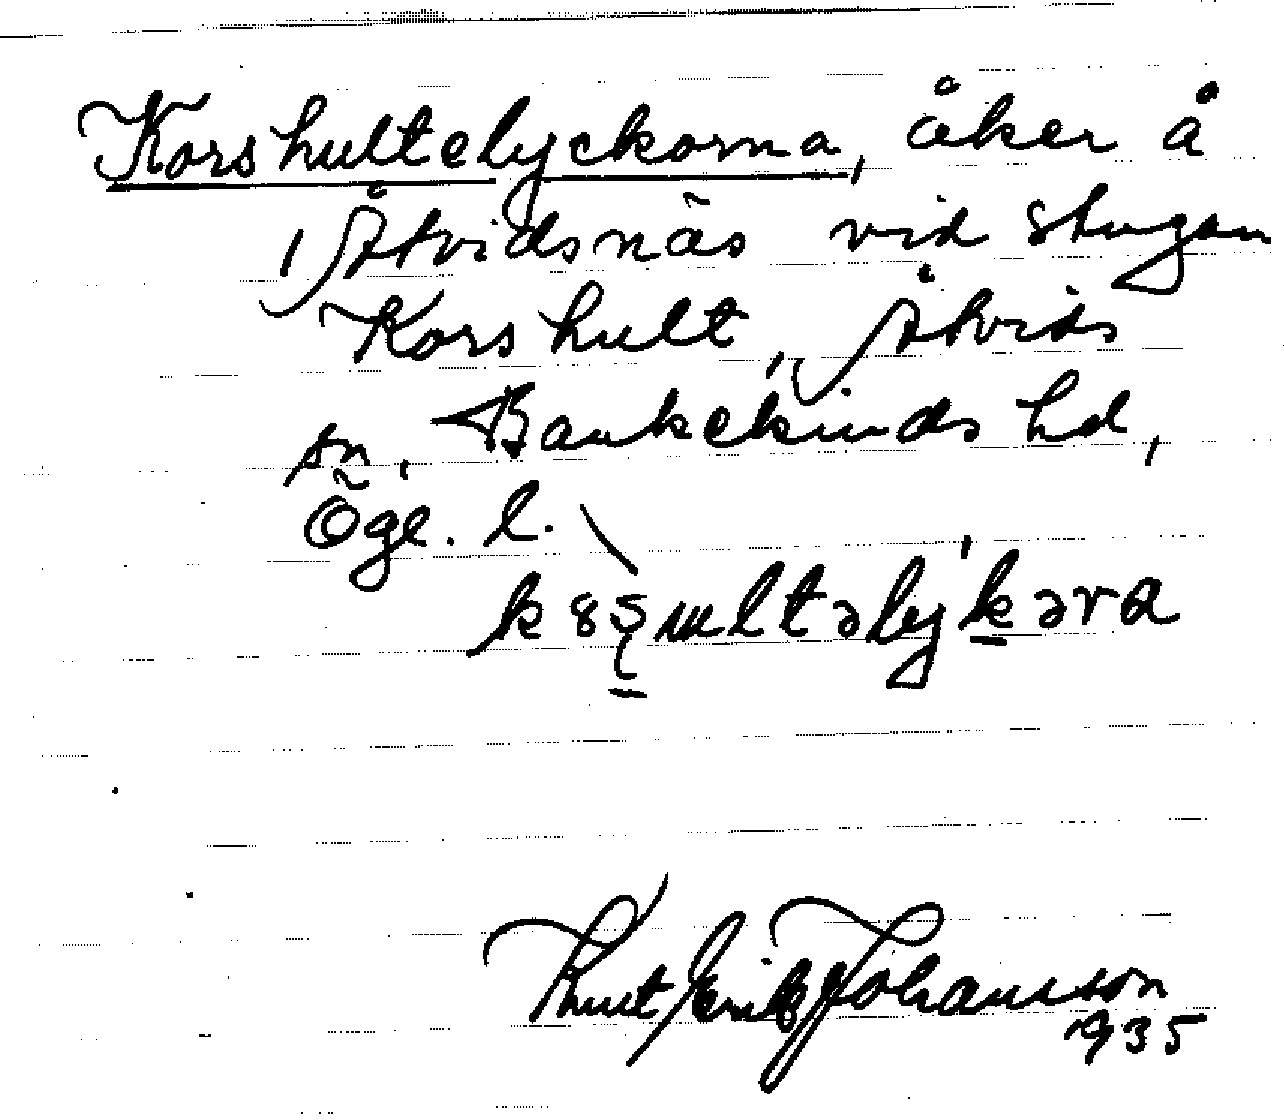 Korshultelyckorna, åker å
/Åtvidsnäs vid stugan
Korshult, Åtvids
sn, Bankekinds hd,
Ögl. l.
Knut Erik Johansson
1935